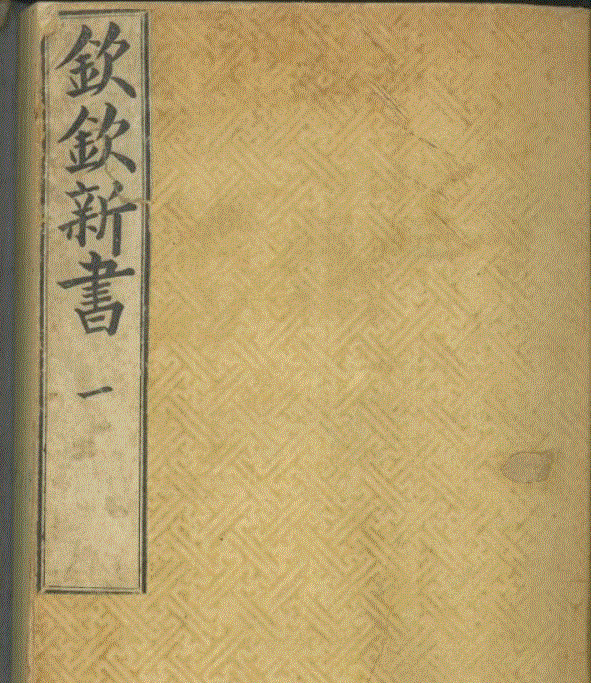 欽欽新書 一